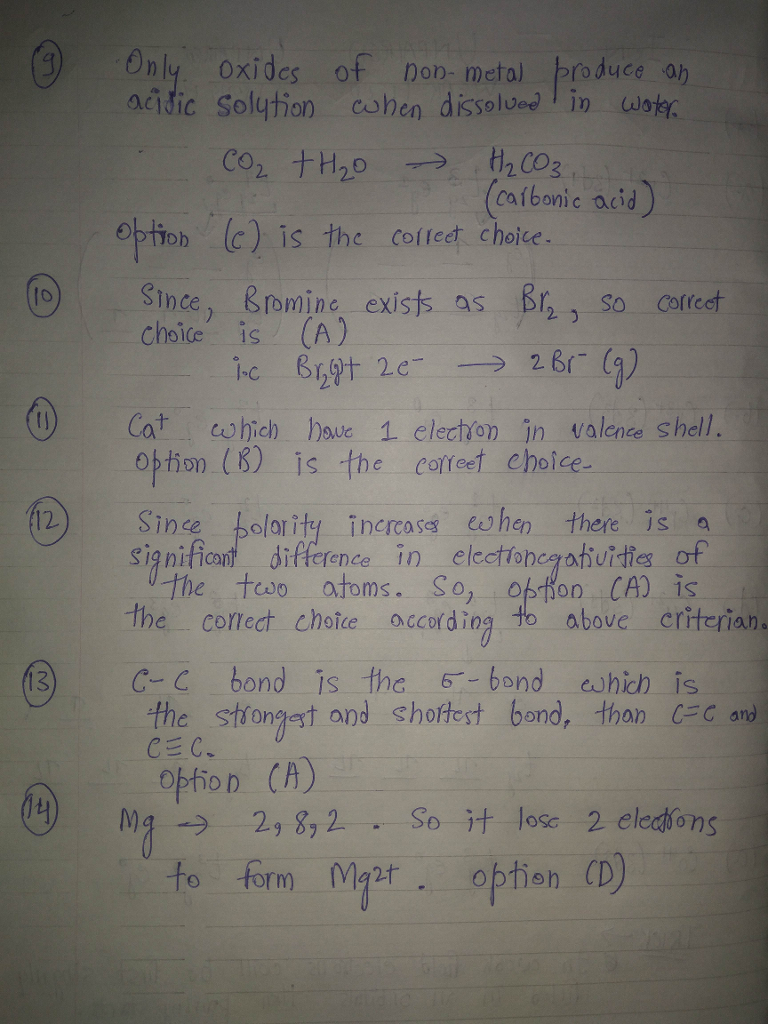 (9) Only oxides of non-metal produce an
acidic solution when dissolved in water.
CO₂ + H₂O → H₂CO₃
(carbonic acid)
Option (c) is the correct choice.
(10) Since, Bromine exists as Br₂, so correct
choice is (A)
i.e Br₂(g) + 2e⁻ → 2Br⁻ (g)
(11) Ca⁺ which have 1 electron in valence shell.
option (B) is the correct choice.
(12) Since polarity increases when there is a
significant difference in electronegativities of
the two atoms. So, option (A) is
the correct choice according to above criterian.
(13) C-C bond is the σ-bond which is
the strongest and shortest bond, than C=C and
C≡C.
option (A)
(14) Mg → 2,8,2. So it lose 2 electrons
to form Mg2+. option (D)